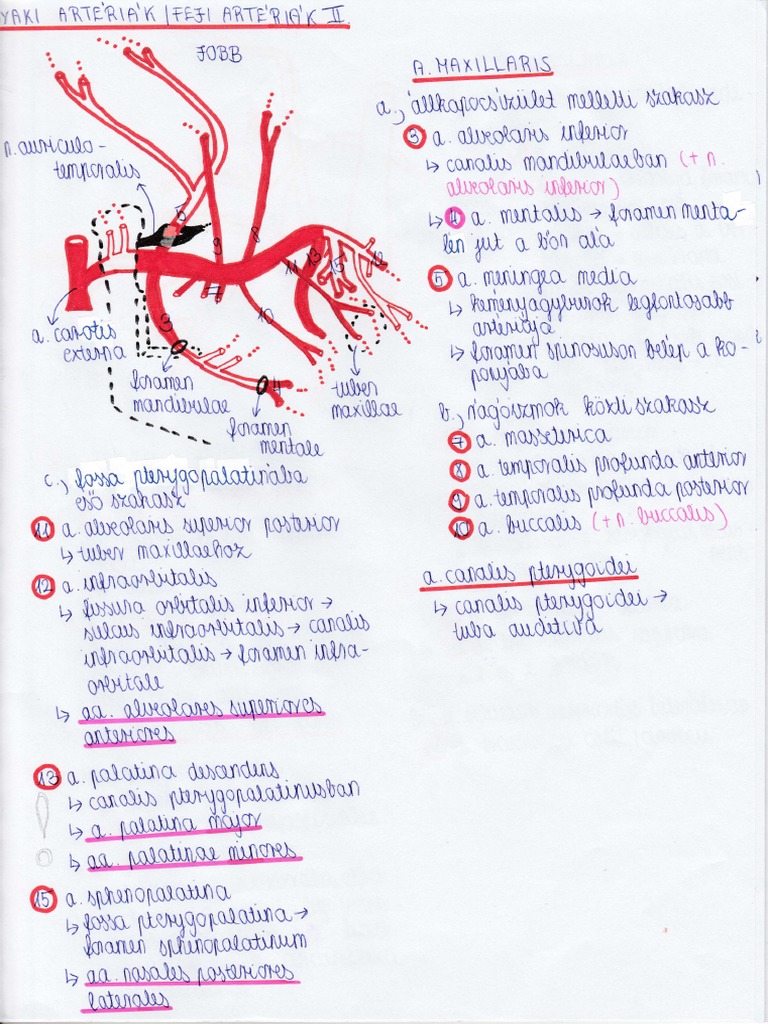 YAKI ARTÉRIÁK / FEJI ARTÉRIÁK II.
JOBB
n. auriculo-
temporalis
5
9
8
7
3
10
11
13
15
12
4
a. carotis
externa
foramen
mandibulae
foramen
mentale
tuber
maxillae
A. MAXILLARIS
a., állkapocsízület melletti szakasz
3 a. alveolaris inferior
↳ canalis mandibulaeban (+ n.
alveolaris inferior)
↳ 4 a. mentalis → foramen menta-
len jut a bőr alá
5 a. meningea media
↳ keményagyburok legfontosabb
artériája
↳ foramen spinosuson belép a ko-
ponyába
b., rágóizmok közti szakasz
7 a. masseterica
8 a. temporalis profunda anterior
9 a. temporalis profunda posterior
10 a. buccalis (+ n. buccalis)
a. canalis pterygoidei
↳ canalis pterygoidei →
tuba auditiva
c., fossa pterygopalatinába
eső szakasz
11 a. alveolaris superior posterior
↳ tuber maxillaehoz
12 a. infraorbitalis
↳ fissura orbitalis inferior →
sulcus infraorbitalis → canalis
infraorbitalis → foramen infra-
orbitale
↳ aa. alveolares superiores
anteriores
13 a. palatina descendens
↳ canalis pterygopalatinusban
↳ a. palatina major
↳ aa. palatinae minores
15 a. sphenopalatina
↳ fossa pterygopalatina →
foramen sphenopalatinum
↳ aa. nasales posteriores
laterales